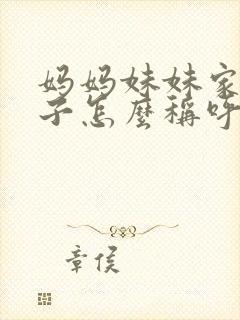 妈妈妹妹家
子怎麽稱呼
章侯